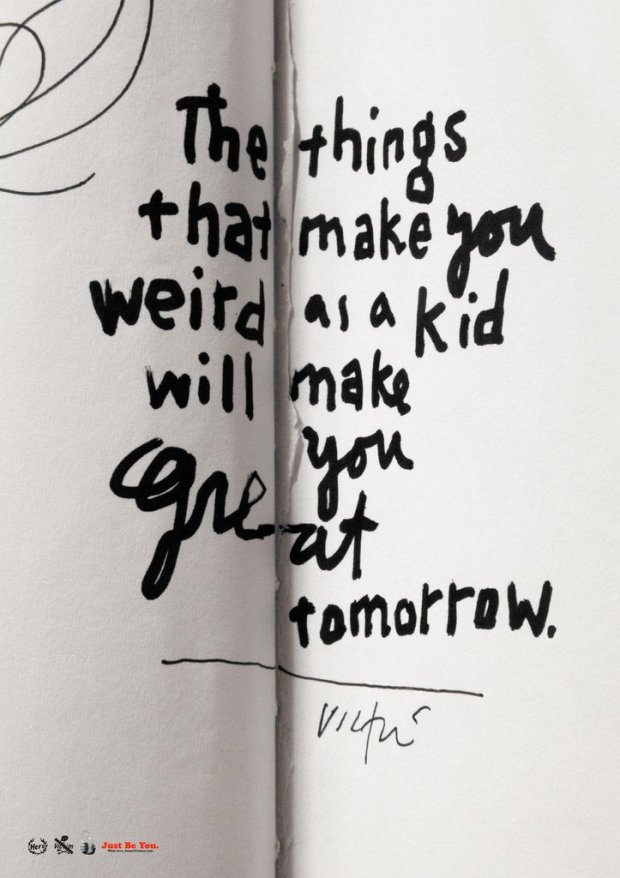 The things
that make you
weird as a kid
will make
you
great
tomorrow.
Victoré
Hero
Just Be You.